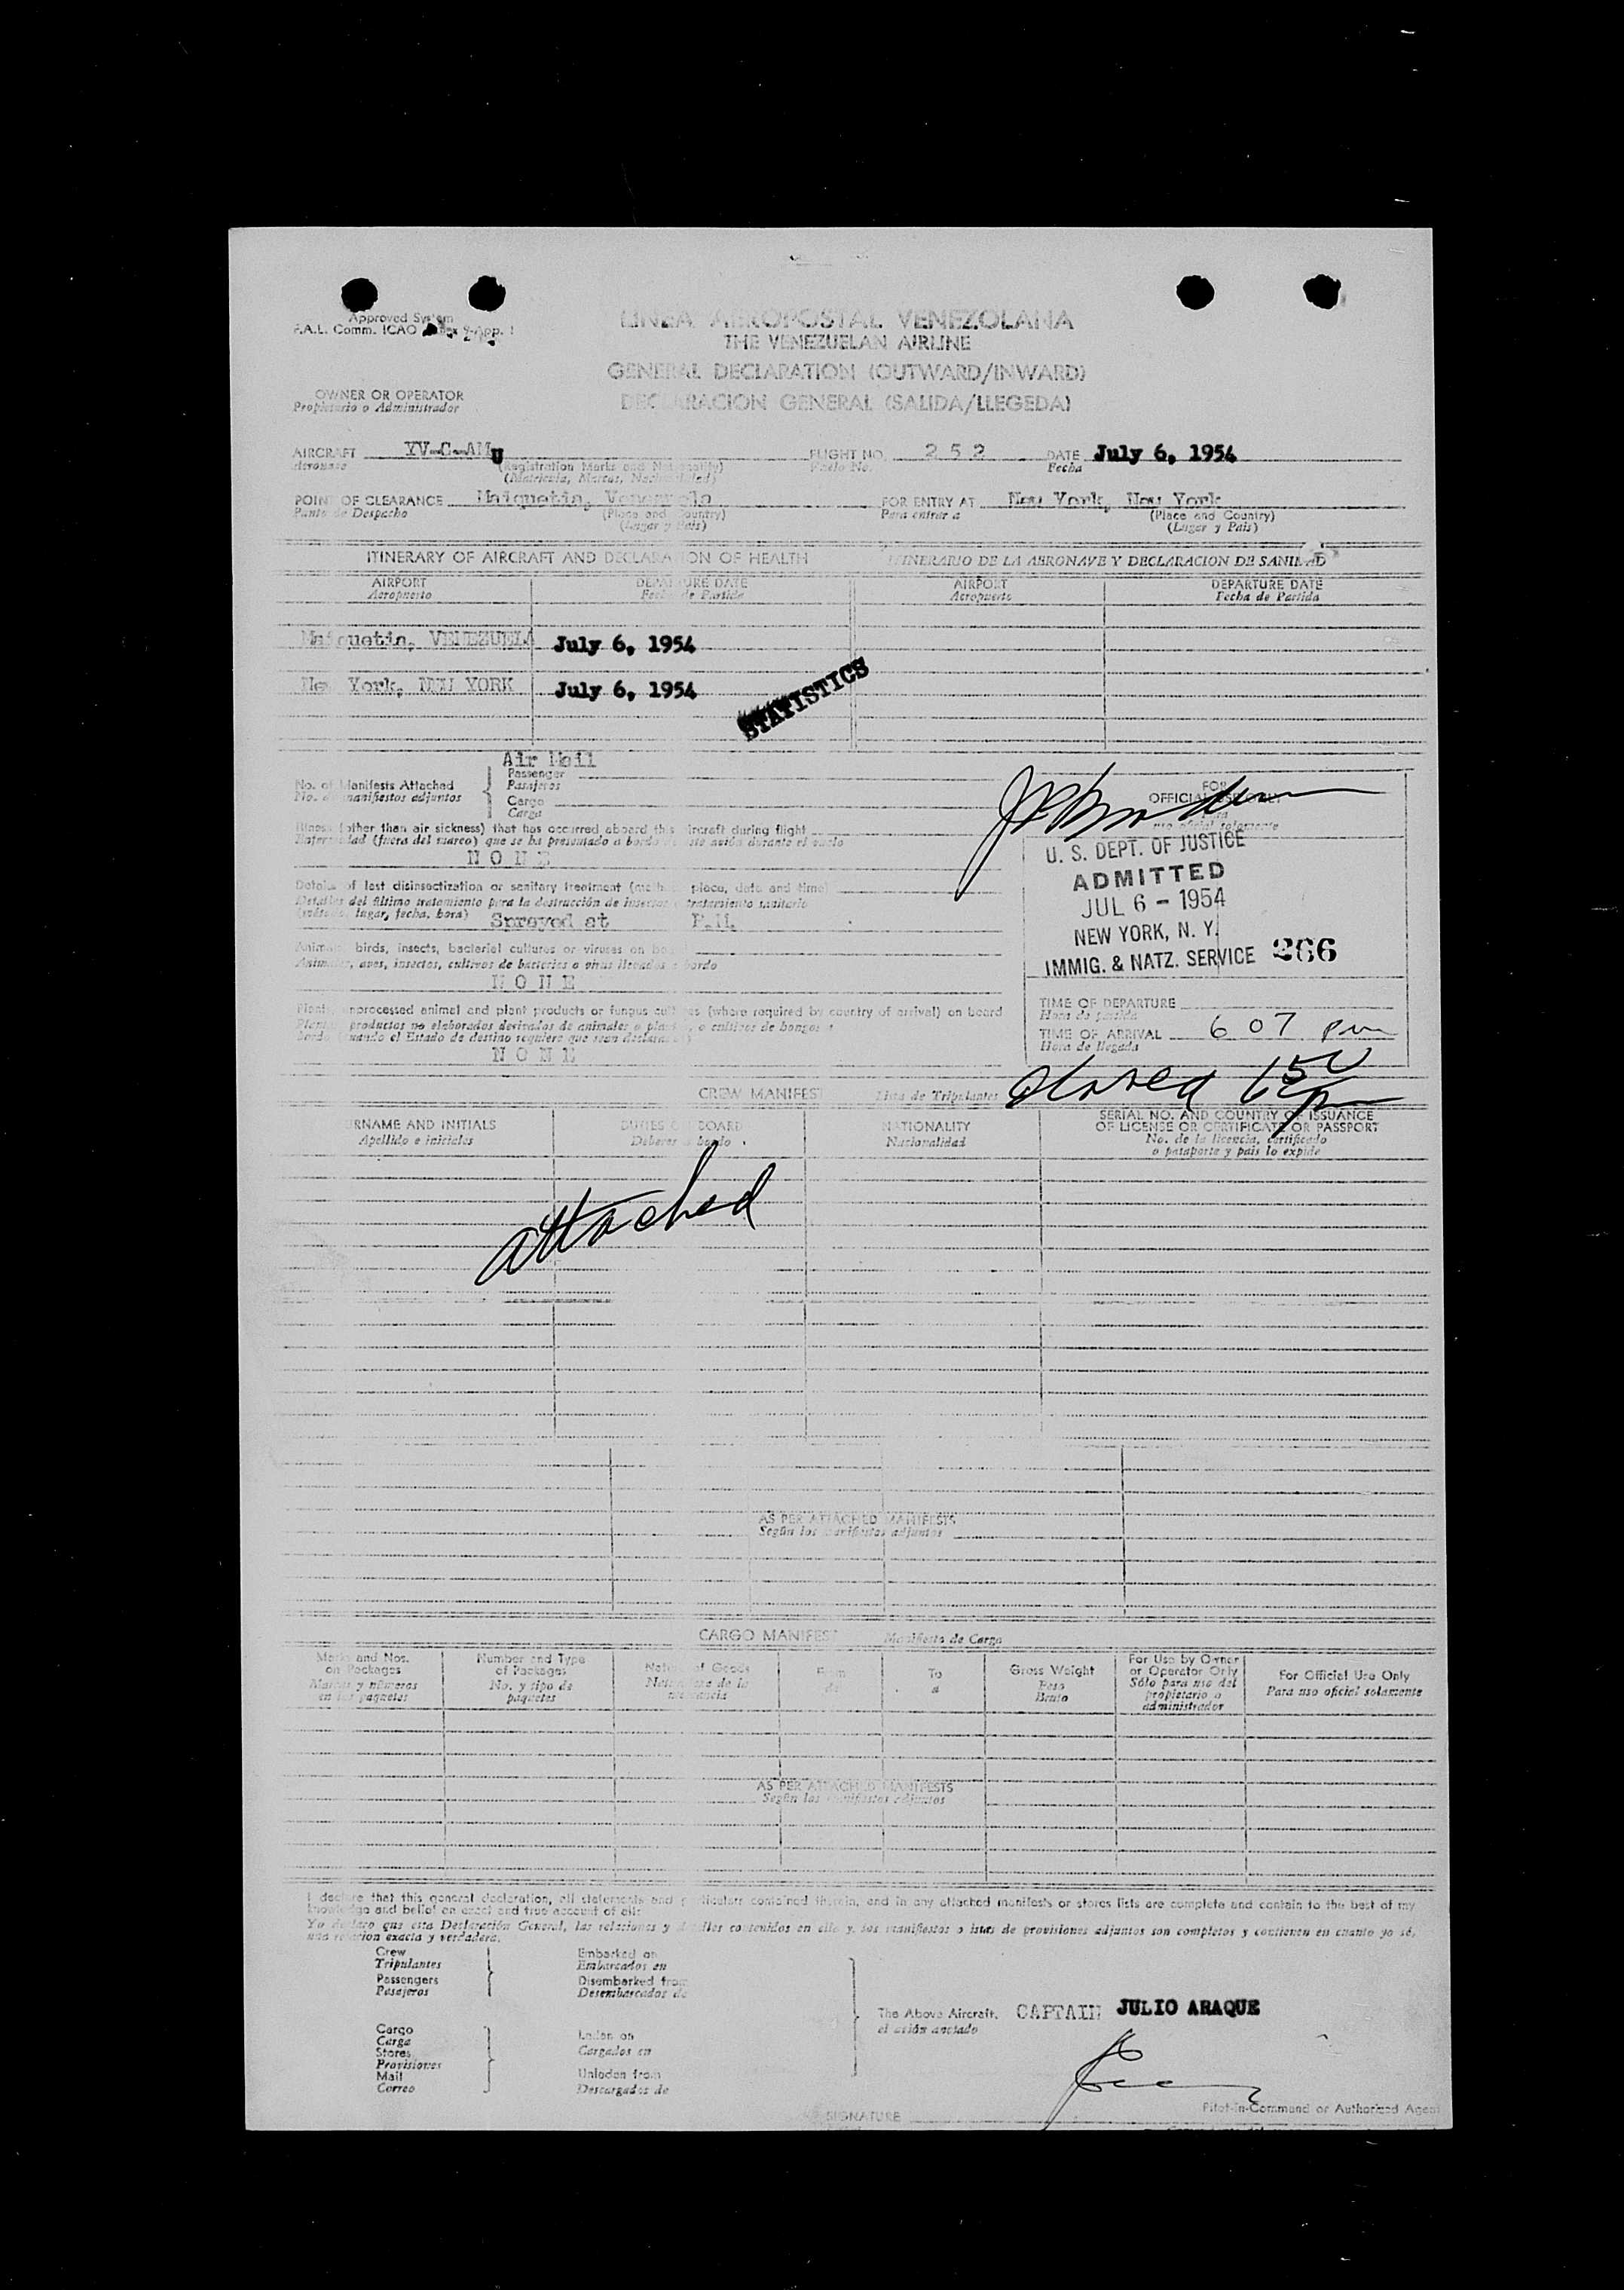 Approved System
F.A.L. Comm. ICAO Annex 9-App. 1
LINEA AEROPOSTAL VENEZOLANA
THE VENEZUELAN AIRLINE
GENERAL DECLARATION (OUTWARD/INWARD)
DECLARACION GENERAL (SALIDA/LLEGEDA)
OWNER OR OPERATOR
Propietario o Administrador
AIRCRAFT YV-C-AMU FLIGHT NO. 252 DATE July 6, 1954
Aeronave (Registration Marks and Nationality) Vuelo No. Fecha
POINT OF CLEARANCE Maiquetia, Venezuela FOR ENTRY AT New York, New York
Punto de Despacho (Place and Country) Para entrar a (Place and Country)
(Lugar y Pais) (Lugar y Pais)
ITINERARY OF AIRCRAFT AND DECLARATION OF HEALTH ITINERARIO DE LA AERONAVE Y DECLARACION DE SANIDAD
AIRPORT DEPARTURE DATE AIRPORT DEPARTURE DATE
Aeropuerto Fecha de Partida Aeropuerto Fecha de Partida
Maiquetia, VENEZUELA July 6, 1954
New York, NEW YORK July 6, 1954
STATISTICS
Air Mail
No. of Manifests Attached Passenger
No. de manifiestos adjuntos Pasajeros
Cargo
Carga
FOR
OFFICIAL USE ONLY
uso oficial solamente
Illness (other than air sickness) that has occurred aboard this aircraft during flight
Enfermedad (fuera del mareo) que se ha presentado a bordo de este avión durante el vuelo
NONE
Details of last disinsectization or sanitary treatment (method, place, date and time)
Detalles del último tratamiento para la destrucción de insectos o tratamiento sanitario
(método, lugar, fecha, hora) Sprayed at P.M.
Animals, birds, insects, bacterial cultures or viruses on board
Animales, aves, insectos, cultivos de bacterias o virus llevados a bordo
NONE
Plants, unprocessed animal and plant products or fungus cultures (where required by country of arrival) on board
Plantas, productos no elaborados derivados de animales o plantas, o cultivos de hongos a
bordo (cuando el Estado de destino requiere que sean declarados)
NONE
U. S. DEPT. OF JUSTICE
ADMITTED
JUL 6 - 1954
NEW YORK, N. Y.
IMMIG. & NATZ. SERVICE 266
TIME OF DEPARTURE
Hora de partida
TIME OF ARRIVAL 6 07 pm
Hora de llegada
CREW MANIFEST Lista de Tripulantes
SURNAME AND INITIALS DUTIES ON BOARD NATIONALITY SERIAL NO. AND COUNTRY OF ISSUANCE
OF LICENSE OR CERTIFICATE OR PASSPORT
Apellido e iniciales Deberes a bordo Nacionalidad No. de la licencia, certificado
o pasaporte y pais lo expide
attached
AS PER ATTACHED MANIFESTS
Según los manifiestos adjuntos
CARGO MANIFEST Manifiesto de Carga
Marks and Nos. on Packages Number and Type of Packages Nature of Goods From To Gross Weight For Use by Owner or Operator Only For Official Use Only
Marcas y números en los paquetes No. y tipo de paquetes Naturaleza de la mercancia de a Peso Bruto Sólo para uso del propietario o administrador Para uso oficial solamente
AS PER ATTACHED MANIFESTS
Según los manifiestos adjuntos
I declare that this general declaration, all statements and particulars contained therein, and in any attached manifests or stores lists are complete and contain to the best of my
knowledge and belief an exact and true account of all:
Yo declaro que esta Declaración General, las relaciones y detalles contenidos en ella y los manifiestos o listas de provisiones adjuntos son completos y contienen en cuanto yo sé,
una relación exacta y verdadera.
Crew Embarked on
Tripulantes Embarcados en
Passengers Disembarked from
Pasajeros Desembarcados de
The Above Aircraft. CAPTAIN JULIO ARAQUE
el avión anotado
Cargo Laden on
Carga Cargados en
Stores
Provisiones
Mail Unladen from
Correo Descargados de
SIGNATURE Pilot-in-Command or Authorized Agent